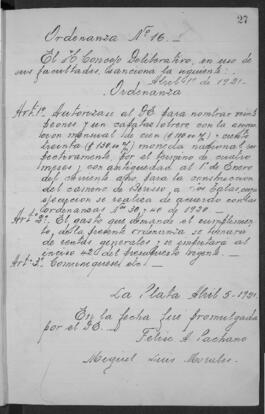 27
Ordenanza Nº 16. –
El H Concejo Deliberativo, en uso de
sus facultades, sanciona la siguiente:
Abril 1º de 1921.
Ordenanza
Art. 1º Autorizase al D.E para nombrar
peones y un capataz obrero con la
mensual de cien ($ 100 m/n) y ciento
treinta ($ 130 m/n) moneda nacional
pectivamente, por el término de cuatro
meses y con antigüedad al 1º de Enero
del corriente año, para la construcción
del camino de
ejecución se realiza de acuerdo con
Ordenanzas Nº 30, de 1920. –
Art. 2º. El gasto que demande el cumplimien
to, de la presente ordenanza se tomará
de rentas generales, e imputará al
inciso del presupuesto vigente. –
Art. 3º. Comuníquese, etc. |
La Plata Abril 5-1921.
En la fecha fué promulgada
por el D.E. –
Felix A Pachano
Miguel Luis Morales. –